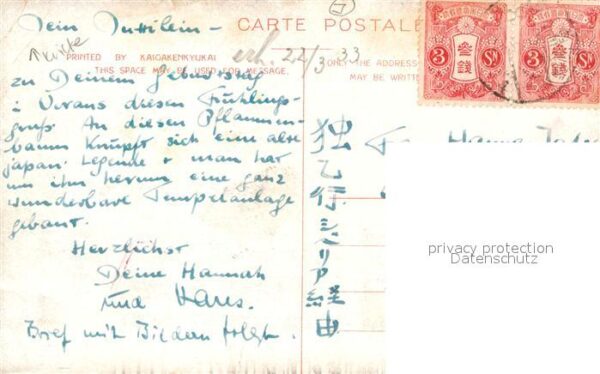 Dein Muttilein –
CARTE POSTALE
erh. 22/3 33
PRINTED BY KAIGAKENKYUKAI
THIS SPACE MAY BE USED FOR MESSAGE.
ONLY THE ADDRESS
MAY BE WRITTEN
zu Deinem Geburtstag
i. Voraus diesen Frühlings-
gruß. An diesen Pflaumen-
baum knüpft sich eine alte
japan. Legende & man hat
um ihn herum eine ganz
wunderbare Tempelanlage
gebaut.
Herzlichst
Deine Hannah
und Hans.
Brief mit Bildern folgt.
独乙行シベリア経由
3 Sn
参銭
3 Sn
参銭
privacy protection
Datenschutz